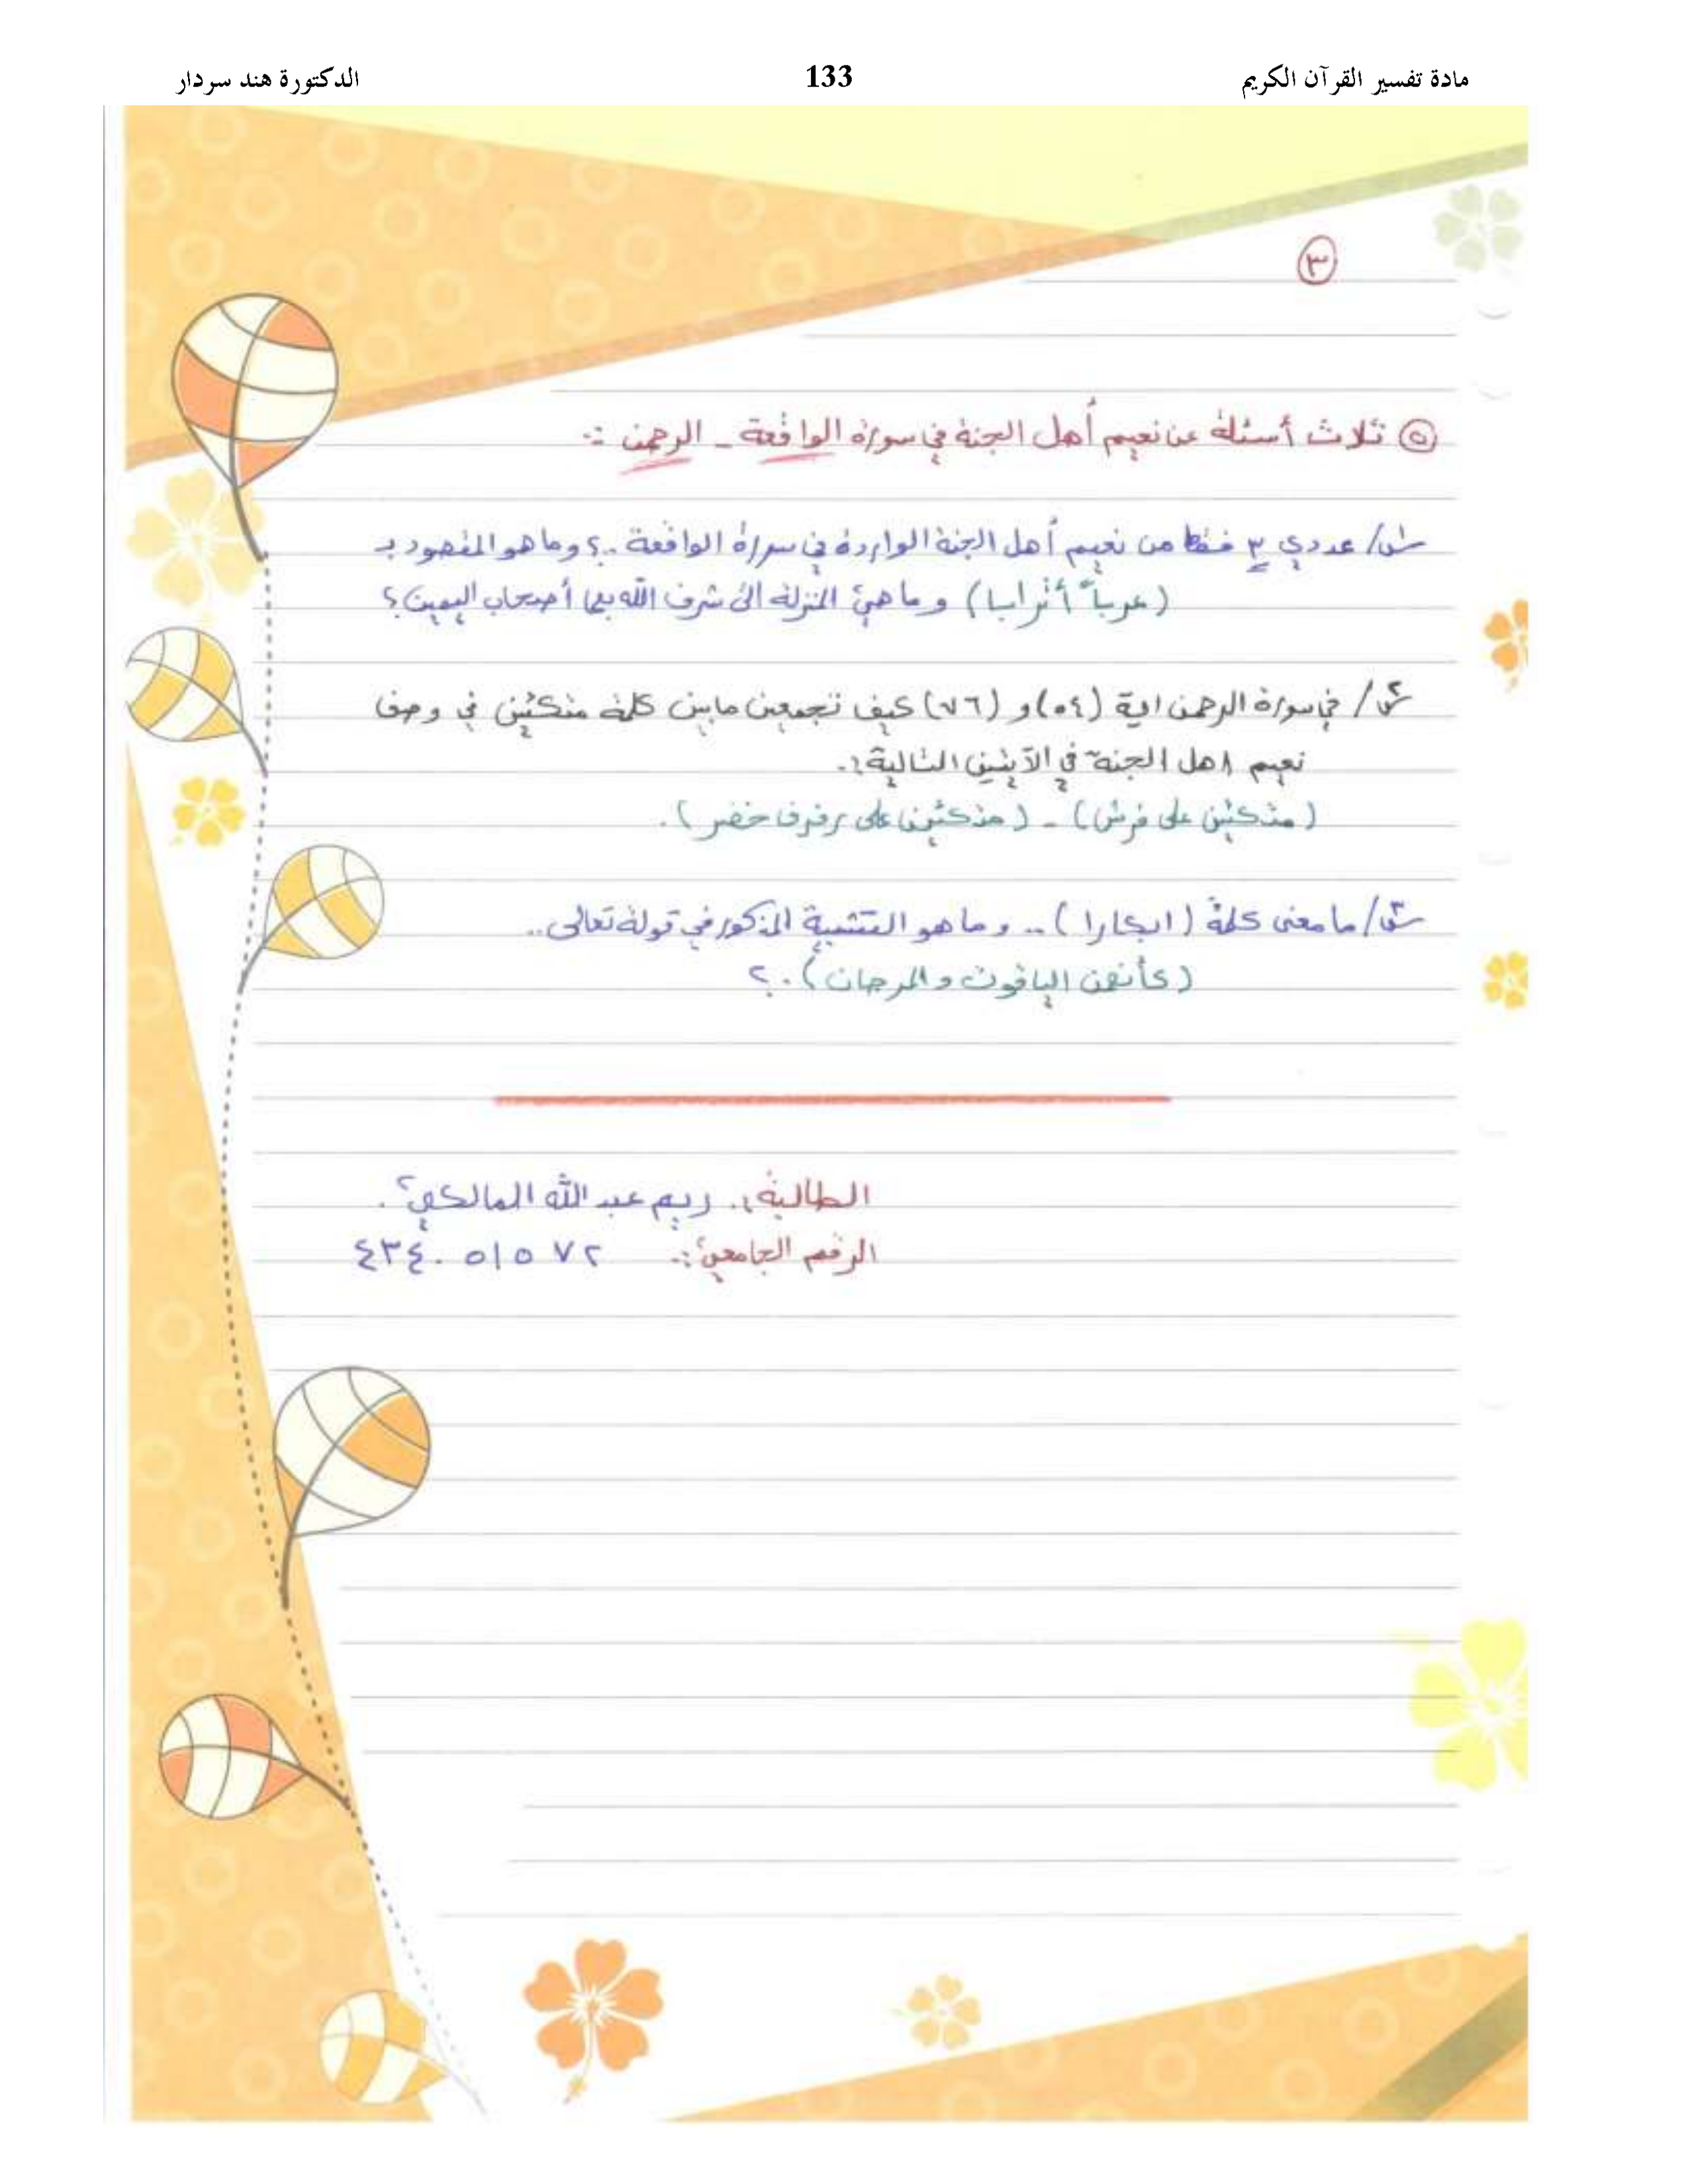 مادة تفسير القرآن الكريم 133 الدكتورة هند سردار
٣
٥ ثلاث أسئلة عن نعيم أهل الجنة في سورة الواقعة - الرحمن :-
س١/ عددي ٣ فقط من نعيم أهل الجنة الواردة في سورة الواقعة ..؟ وما هو المقصود بـ
(عرباً أترابا) وما هي المنزلة التي شرف الله بها أصحاب اليمين؟
س٢/ في سورة الرحمن اية (٥٤) و (٧٦) كيف تجمعين مابين كلمة متكئين في وصف
نعيم اهل الجنة في الآيتين التالية :-
(متكئين على فرش) - (متكئين على رفرف خضر).
س٣/ ما معنى كلمة (ابكارا) .. وما هو التشبية المذكور في قولة تعالى ..
(كأنهن الياقوت والمرجان) . ؟
الطالبة :. ريم عبد الله المالكي .
الرقم الجامعي :. ٤٣٤٠٥١٥٧٢